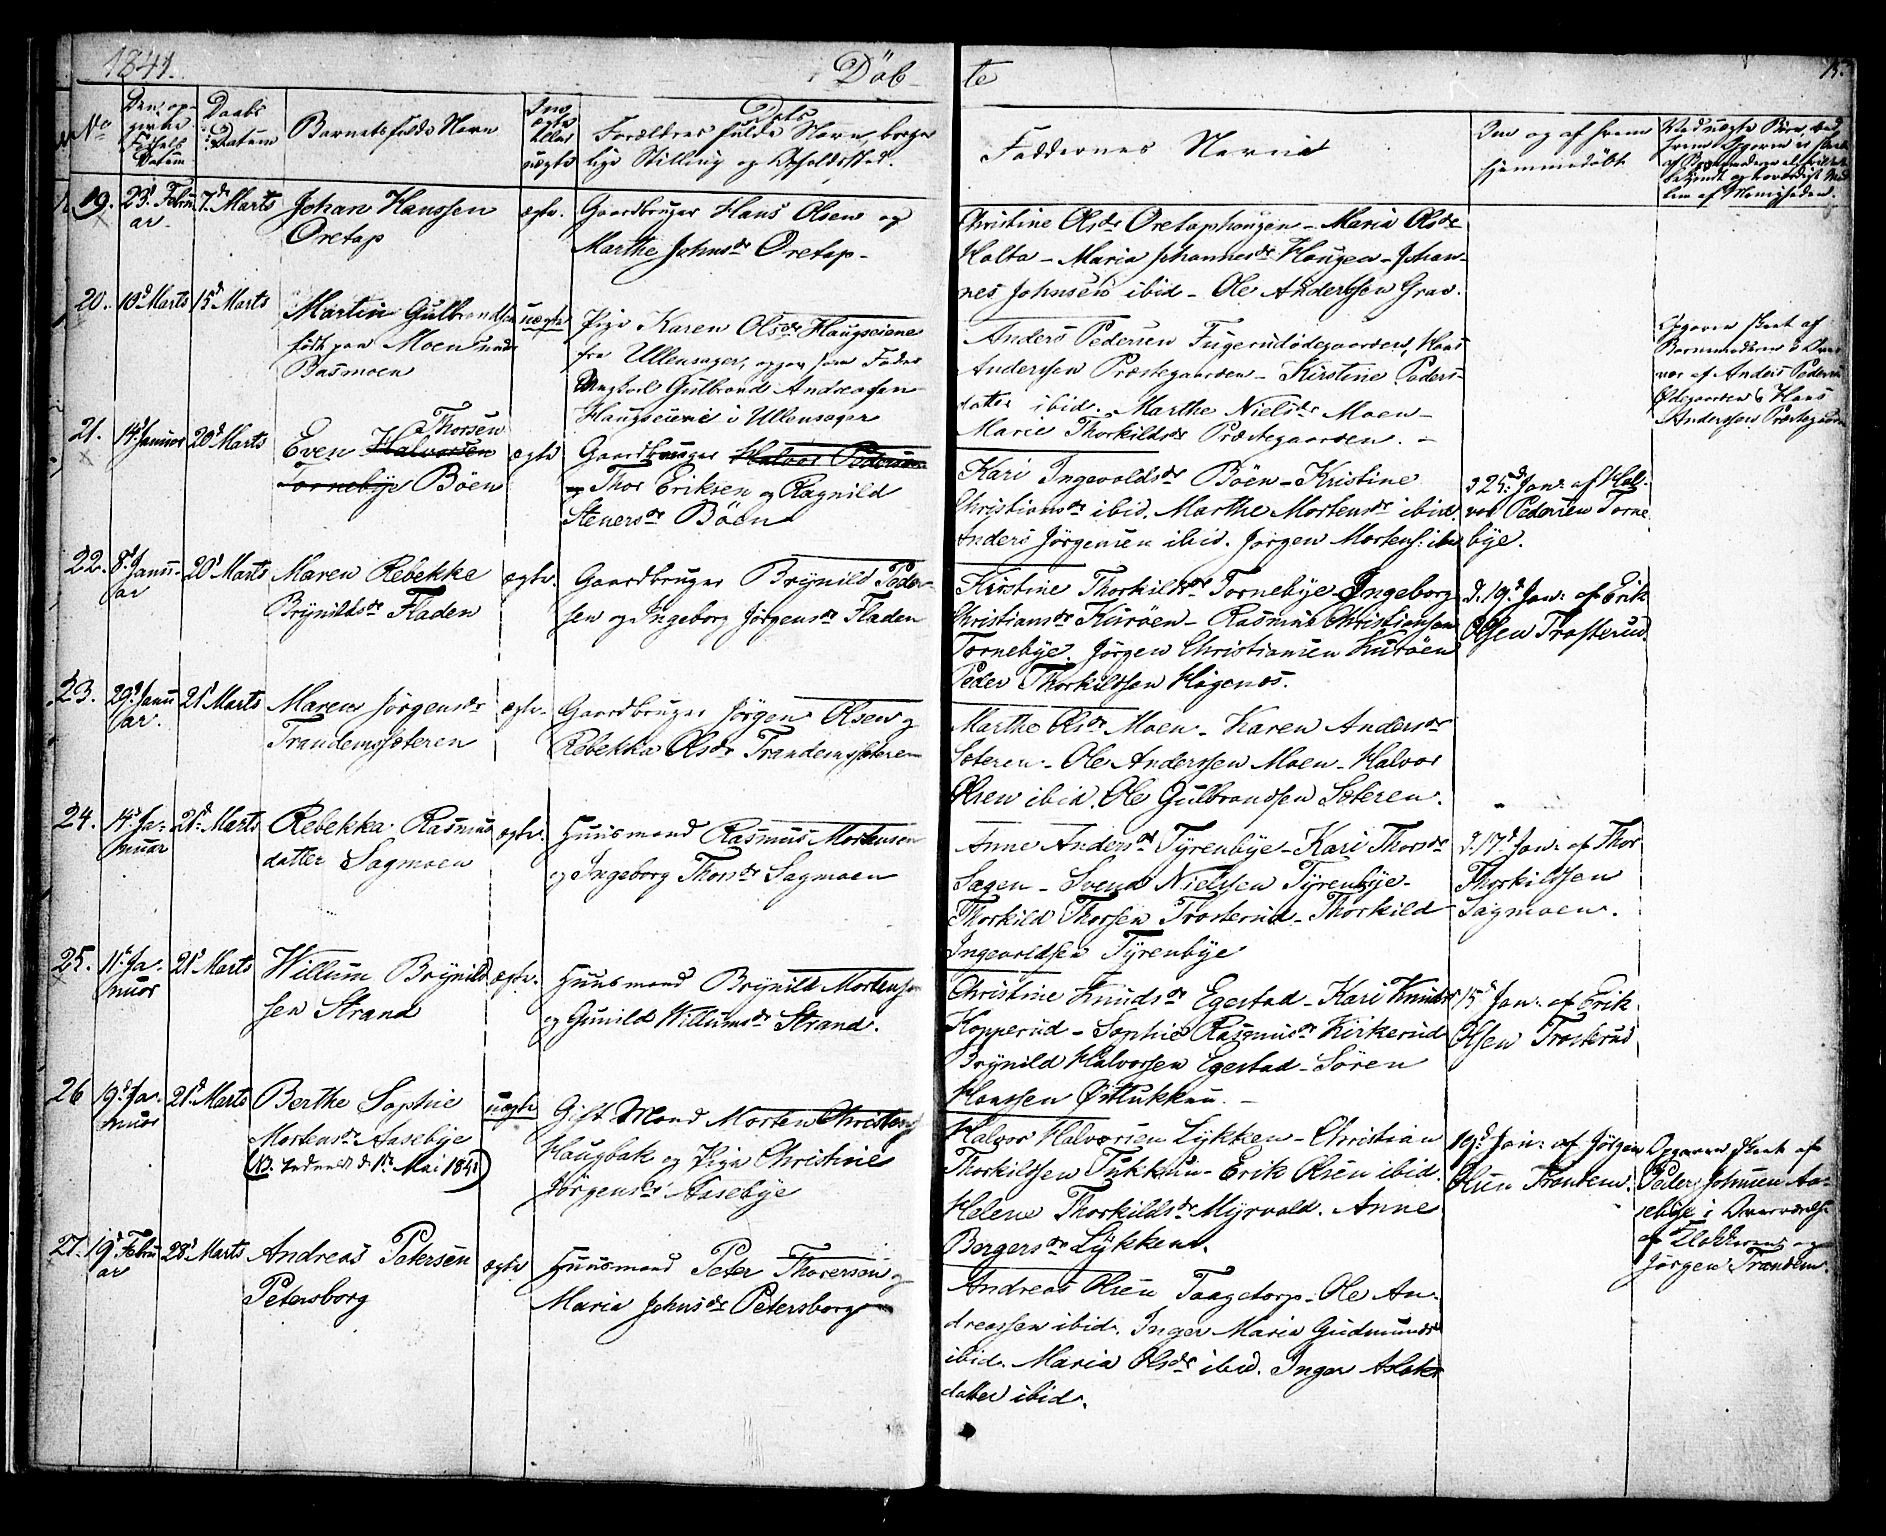 1841.
Döb
te
15.
No
Den op-
givne
Födsels
Datum
Daabs
Datum
Barnets fulde Navn
Om
ægte
eller
uægte
Dets
Forældres fulde Navn, borger
lige Stilling og Opholdssted.
Faddernes Navne
Om og af hvem
hjemmedöbt
19.
23d Febru
ar.
7de Marts
Johan Hanssen
Oretop
ægte.
Gaardbruger Hans Olsen og
Marthe Johnsdr Oretop.
Christine Olsdr Oretophougen - Maria Olsdr
Holta - Maria Johannesdr Haugen - Johan-
nes Johnsen ibid - Ole Anderssen Grav.
20.
10d Marts
15d Marts
Martin Gulbrandsen
födt paa Moen under
Basmoen
uægte
Pige Karen Olsdr Haugseiene
fra Ullensager, opgav som Fader
Ungkarl Gulbrand Andreassen
Haugseiene i Ullensager
Anders Pedersen Fugerudödegaarden, Hans
Anderssen Præstegaarden - Kirstine Peders-
datter ibid. Marthe Nielsdr Moen -
Marie Thorkildsdr Præstegaarden. -
Opgaven skeet af
Barnemoderen i Over
vær af Anders Pedersen
Ödegaarden & Hans
Anderssen Præstegaarden
21.
14d Januar
20d Marts
Thorsen
Even Halvorsen
Tornebye Böen
ægte
Gaardbruger Halvor Pedersen
og Thor Eriksen og Ragnild
Stenersdr Böen
Kari Ingevoldsdr Böen - Kristine
Christiansdr ibid. Marthe Mortensdr ibid.
Anders Jörgensen ibid. Jörgen Mortens: ibid
d 25d Jan: af Hal-
vor Pedersen Torne
bye.
22.
8d Janu-
ar
20d Marts
Maren Rebekke
Brÿnildsdr Fladen
ægte.
Gaardbruger Brÿnild Peder-
sen og Ingeborg Jörgensdr Fladen
Kirstine Thorkildsdr Tornebÿe Ingeborg
Christiansdr Kuröen - Rasmus Christiansen
Tornebÿe. Jörgen Christiansen Kuröen
Peder Thorkildsen Högenæs.
d. 19d Jan: af Erik
Olsen Trosterud.
23.
29d Janu
ar.
21d Marts
Maren Jörgensdr
Trandemssæteren
ægte.
Gaardbruger Jörgen Olsen og
Rebekka Olsdr Trandemssæteren
Marthe Olsdr Moen - Karen Andersdr
Sæteren - Ole Anderssen Moen - Halvor
Olsen ibid. Ole Gulbrandsen Sæteren.
24.
14d Ja-
nuar
21d Marts
Rebekka Rasmus
datter Sagmoen
ægte.
Huusmand Rasmus Mortensen
og Ingeborg Thorsdr Sagmoen
Anne Andersdr Tÿrenbÿe - Kari Thorsdr
Sagen - Svend Nielssen Tÿrenbÿe -
Thorkild Thorsen Trosterud - Thorkild
Ingevoldsen Tÿrenbÿe
d. 17d Jan: af Thor
Thorkildsen
Sagmoen.
25.
11d Ja-
nuar
21d Marts
Willum Brÿnild
sen Strand
ægte.
Huusmand Brÿnild Mortensen
og Gunild Willumsdr Strand.
Christine Knudsdr Egestad - Kari Knudsdr
Kopperud - Sophie Rasmusdr Kirkerud
Brÿnild Halvorsen Egestad - Sören
Hanssen Östlukkun. -
15d Jan: af Erik
Olsen Trosterud
26
19d Ja-
nuar
21d Marts
Berthe Sophie
Mortensdr Aasebÿe
uægte
Gift Mand Morten Christens
Haugbak og Pige Christine
Jörgensdr Aasebÿe
Halvor Halvorsen Lÿkken - Christian
Thorkildsen Lukkun - Erik Olsen ibid.
Helene Thorkildsdr Mÿrvold. Anne
Bergersdr Lÿkken.
19d Jan: af Jörgen
Olsen Trandem.
Opgaven skeet af
Peder Johnsen Aa-
sebÿe i Overværelse
af Klokkeren og
Jörgen Trandem.
27.
19d Febru
ar
28d Marts
Andreas Petersen
Petersborg
ægte
Huusmand Peter Thoresen og
Maria Johnsdr Petersborg
Andreas Olsen Taagetorp - Ole An-
dreassen ibid. Inger Maria Gudmundsdr
ibid. Maria Olsdr ibid. Inger Aslaks
datter ibid.